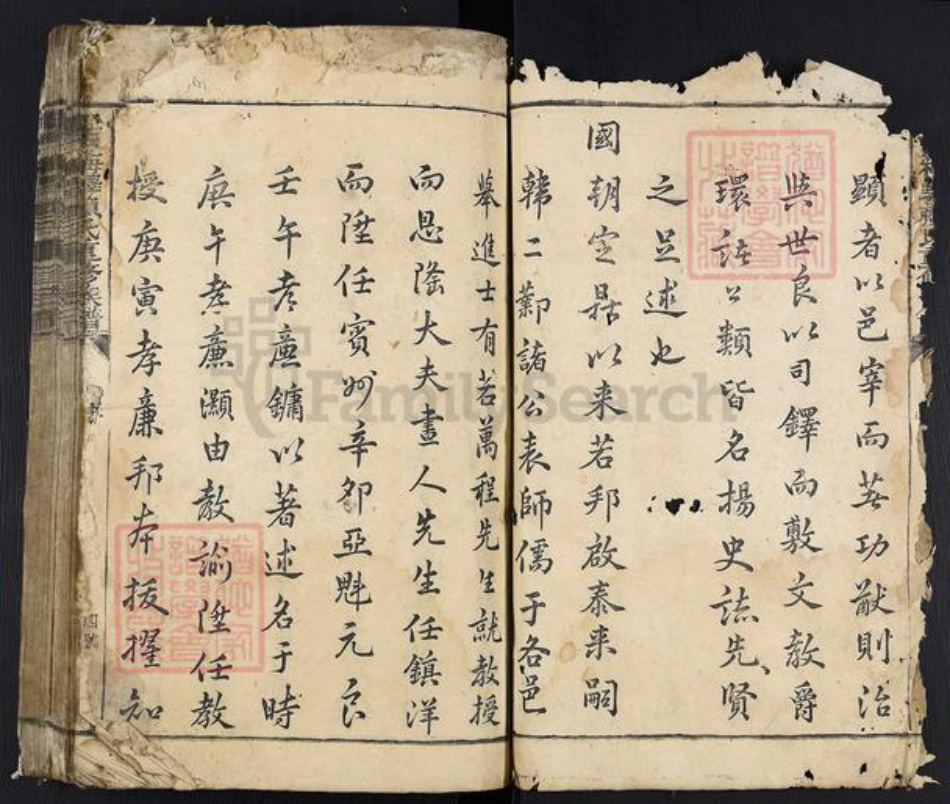 顯者以邑宰而著功猷則治
與世良以司鐸而敷文教爵
環諸公類皆名揚史誌先賢
之足述也
國朝定鼎以来若邦啟泰来嗣
韓二鄴諸公表師儒于各邑
舉進士有若萬程先生就教授
而恩隆大夫畫人先生任鎮洋
而陞任賓州辛卯亞魁元良
壬午孝廉鏞以著述名于時
庚午孝廉灝由教諭陞任教
授庚寅孝廉邦本拔擢知
FamilySearch